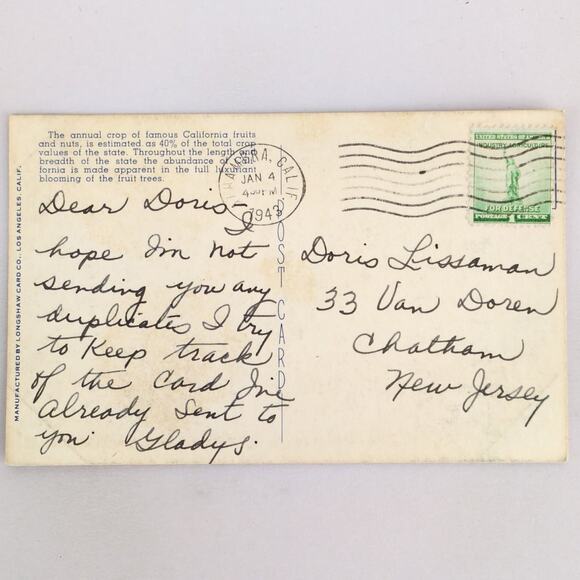 The annual crop of famous California fruits
and nuts, is estimated as 40% of the total crop
values of the state. Throughout the length and
breadth of the state the abundance of Cali-
fornia is made apparent in the full luxuriant
blooming of the fruit trees.
MANUFACTURED BY LONGSHAW CARD CO., LOS ANGELES, CALIF.
Dear Doris - I
hope I'm not
sending you any
duplicates I try
to keep track
of the card I've
already sent to
you. Gladys.
POST CARD
ALHAMBRA, CALIF.
JAN 4
4 PM
1943
UNITED STATES OF AMERICA
INDUSTRY AGRICULTURE
FOR DEFENSE
POSTAGE 1 CENT
Doris Lissaman
33 Van Doren
Chatham
New Jersey